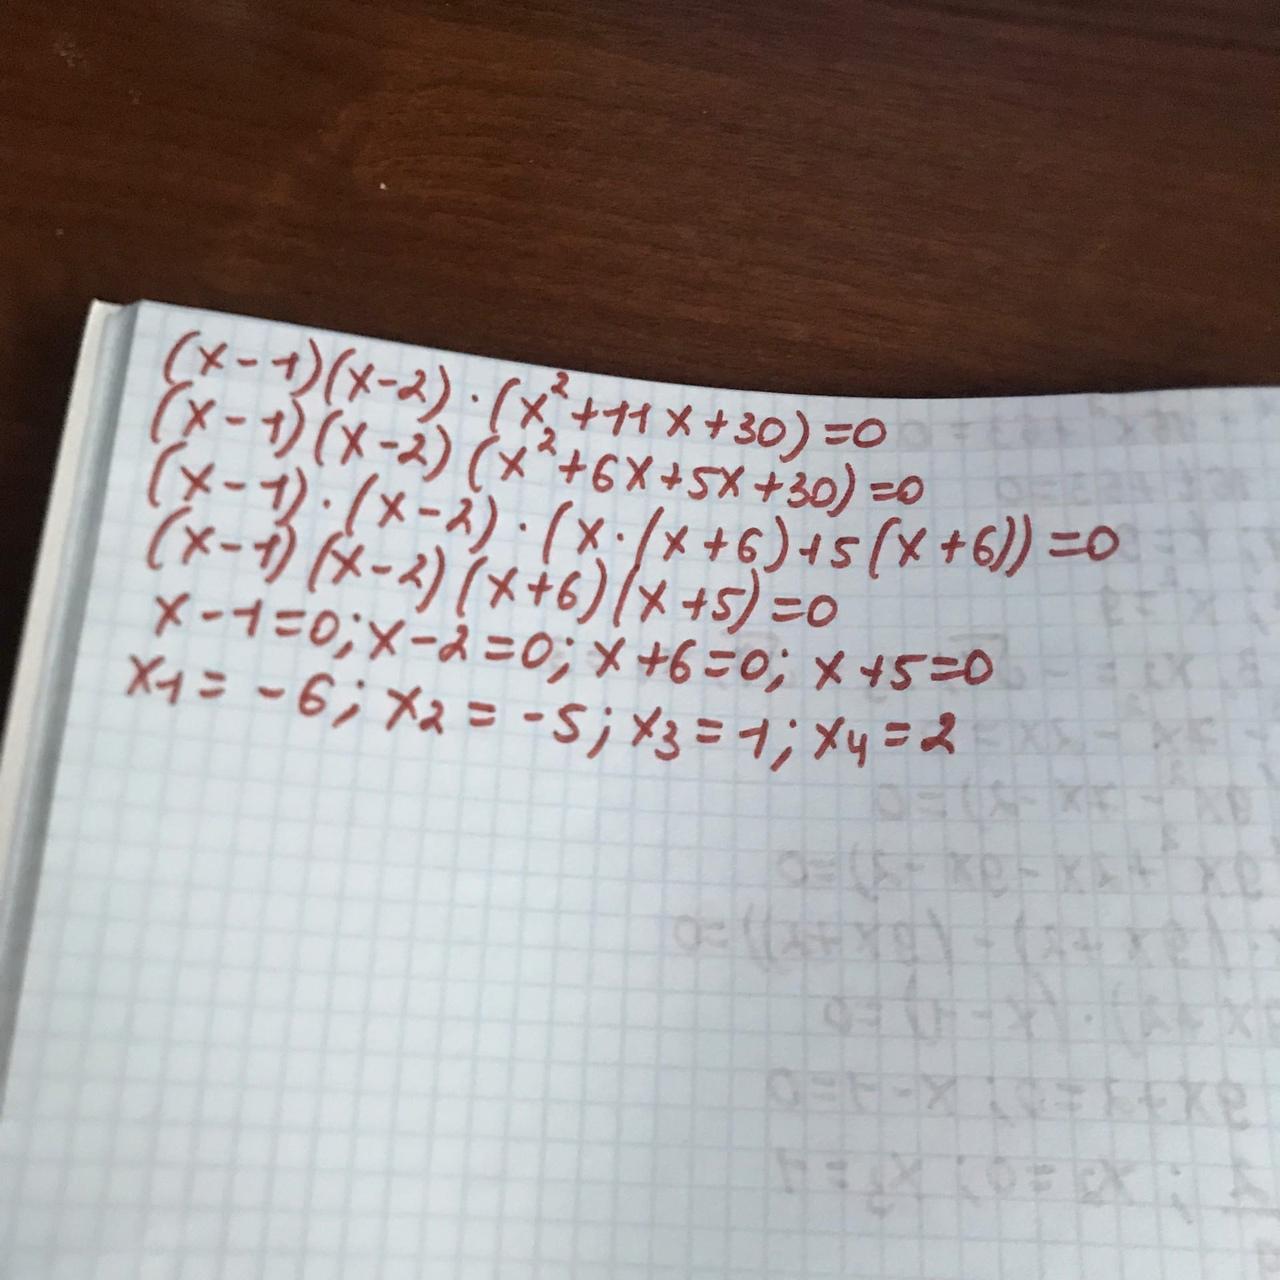 (x-1)(x-2)·(x²+11x+30)=0
(x-1)(x-2)(x²+6x+5x+30)=0
(x-1)·(x-2)·(x·(x+6)+5(x+6))=0
(x-1)(x-2)(x+6)(x+5)=0
x-1=0; x-2=0; x+6=0; x+5=0
x1=-6; x2=-5; x3=1; x4=2